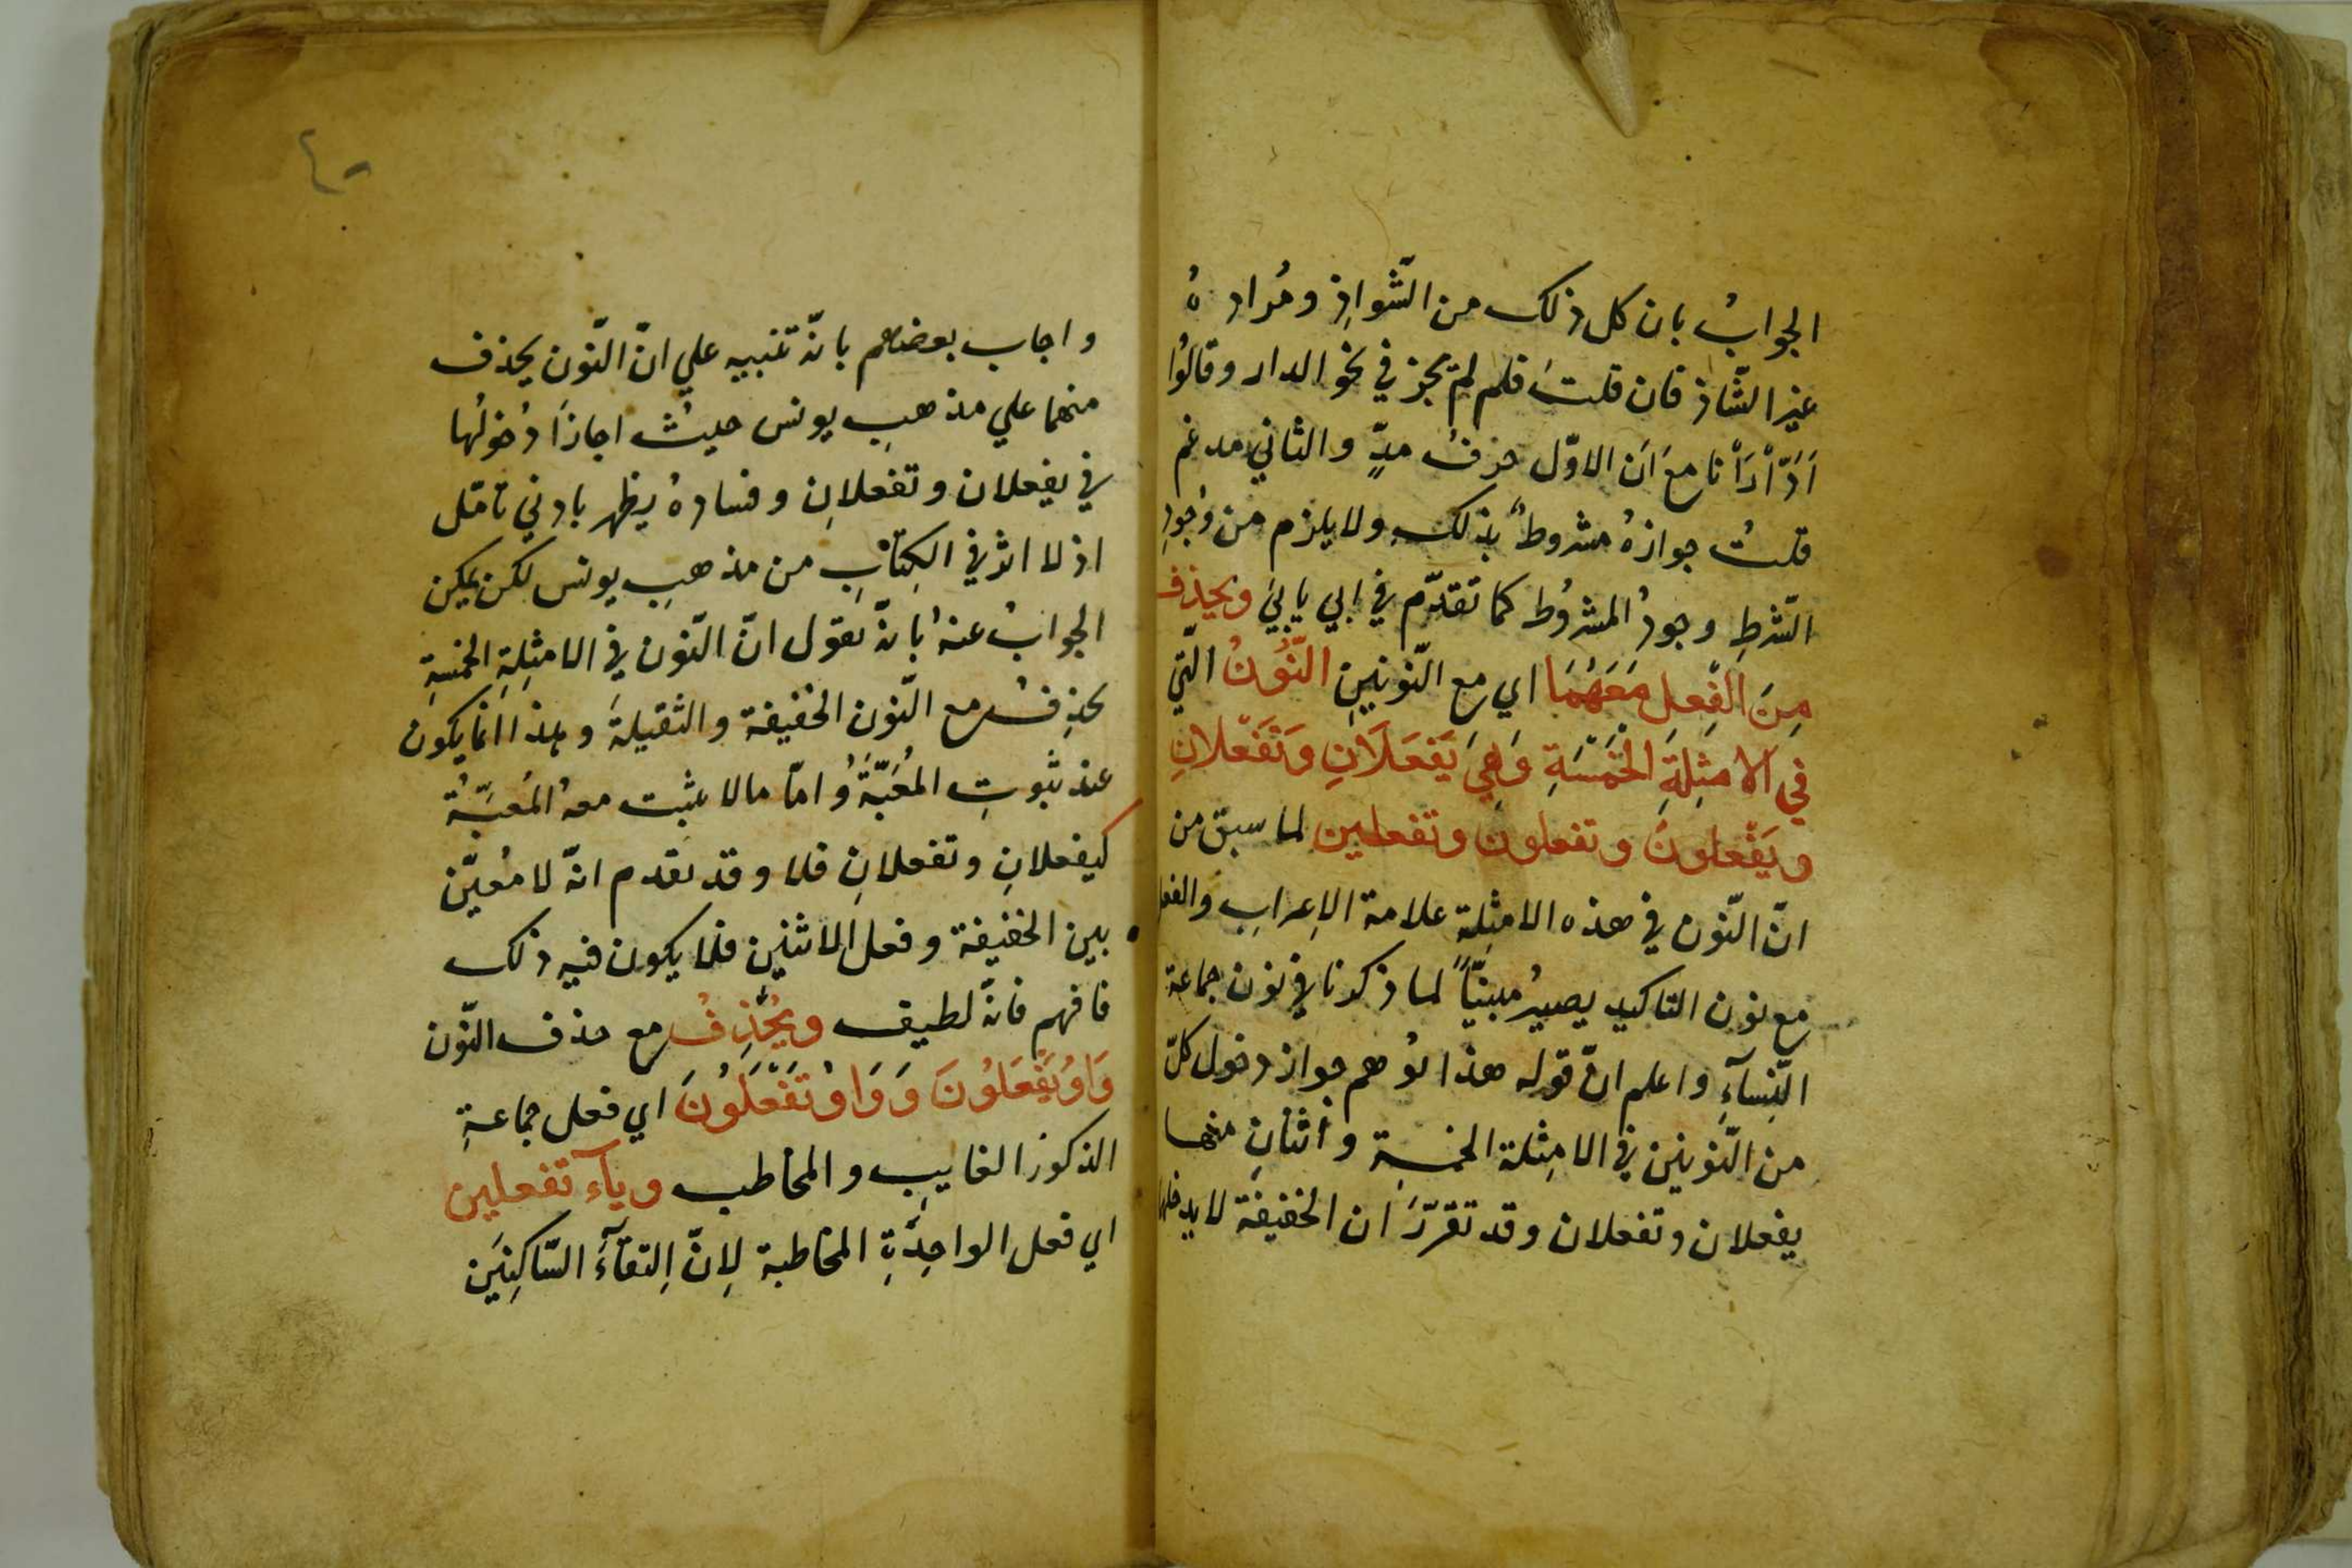 الجوابُ بان كل ذلك من الشّواذِ ومُراده
غير الشّاذ فان قلتَ فلم لم يجز في نحو الدار وقالوُا
ادّارأنا مع ان الاوّل حرفُ مدٍّ والثاني مدغم
قلتُ جوازهُ مشروطٌ بذلك ولا يلزم من وُجودِ
الشّرطِ وجودُ المشروُط كما تقدّم في ابي يابيَ ويحذف
مِنَ الفِعلِ مَعَهُمَا اي مع النّونينِ النّوُنُ الّتي
في الامثِلةِ الخَمْسَةِ وَهِيَ يَفعَلَانِ وَتَفْعَلانِ
ويَفْعلونَ وتفعلون وتفعلين لما سبق من
انّ النّون في هذه الامثِلة علامة الاِعرابِ والفعل
مع نون التاكيد يصيرُ مبنيّاً لما ذكرنا في نون جماعة
النّسآءِ واعلم انّ قوله هذا يُوهم جواز دخول كلّ
من النّونين في الامثِلة الخمسةِ واثنانِ منها
يفعلان وتفعلان وقد تقرّرَ ان الخفيفة لا يدخلها
٤٠
واجاب بعضهم بانّه تنبيه علي انّ النّون يحذف
منهما علي مذهبِ يونس حيثُ اجازَا دُخولُها
في يفعلان وتفعلانِ وفسادهُ يظهر بادني تامّل
اذ لا اثر في الكِتابِ من مذهبِ يونس لكن يمكن
الجوابُ عنهُ بانّه نقول انّ النّون في الامثِلةِ الخمسةِ
يحذِفُ مع النّون الخفيفة والثقيلةَ وهذا انما يكون
عند ثبُوتِ المُعَيّةُ وامّا ما لا يثبت معهُ المُعيّةُ
كيفعلانِ وتفعلانِ فلا وقد تقدم انّه لا مُعيّن
بين الخفيفة وفعل الاثنين فلا يكون فيه ذلك
فافهم فانّه لطيف ويُحْذِفُ مع حذف النّون
وَاوُ يَفْعَلوُنَ وَوَاوُ تَفْعَلوُنَ اي فعل جماعةِ
الذكورَ الغايبِ والمخاطب ويآء تفعلين
اي فعل الواحِدَةِ المخاطبة لِانّ اِلتقآءَ السّاكِنيَن